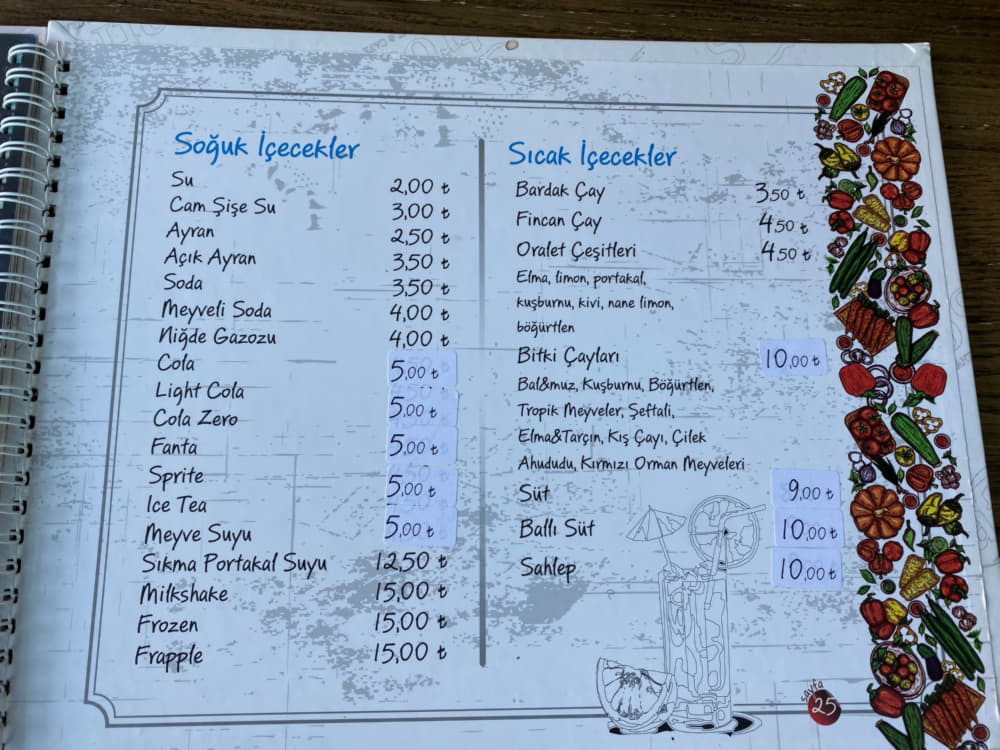 Soğuk İçecekler
Su 2,00 ₺
Cam Şişe Su 3,00 ₺
Ayran 2,50 ₺
Açık Ayran 3,50 ₺
Soda 3,50 ₺
Meyveli Soda 4,00 ₺
Niğde Gazozu 4,00 ₺
Cola 5,00 ₺
Light Cola
Cola Zero 5,00 ₺
Fanta 5,00 ₺
Sprite 5,00 ₺
Ice Tea
Meyve Suyu 5,00 ₺
Sıkma Portakal Suyu 12,50 ₺
Milkshake 15,00 ₺
Frozen 15,00 ₺
Frapple 15,00 ₺
Sıcak İçecekler
Bardak Çay 3,50 ₺
Fincan Çay 4,50 ₺
Oralet Çeşitleri 4,50 ₺
Elma, limon, portakal,
kuşburnu, kivi, nane limon,
böğürtlen
Bitki Çayları 10,00 ₺
Bal&muz, Kuşburnu, Böğürtlen,
Tropik Meyveler, Şeftali,
Elma&Tarçın, Kış Çayı, Çilek
Ahududu, Kırmızı Orman Meyveleri
Süt 9,00 ₺
Ballı Süt 10,00 ₺
Sahlep 10,00 ₺
sayfa
25